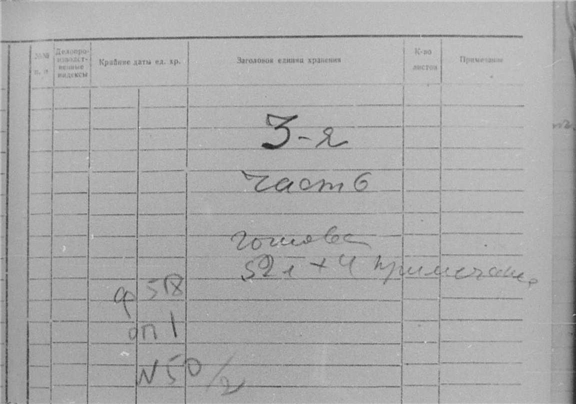 №№ п. п Делопроизводственные индексы Крайние даты ед. хр. Заголовок единки хранения К-во листов Примечание
3-я
часть
готова
52 л + 4 примечания
ф 518
оп 1
N 50/2